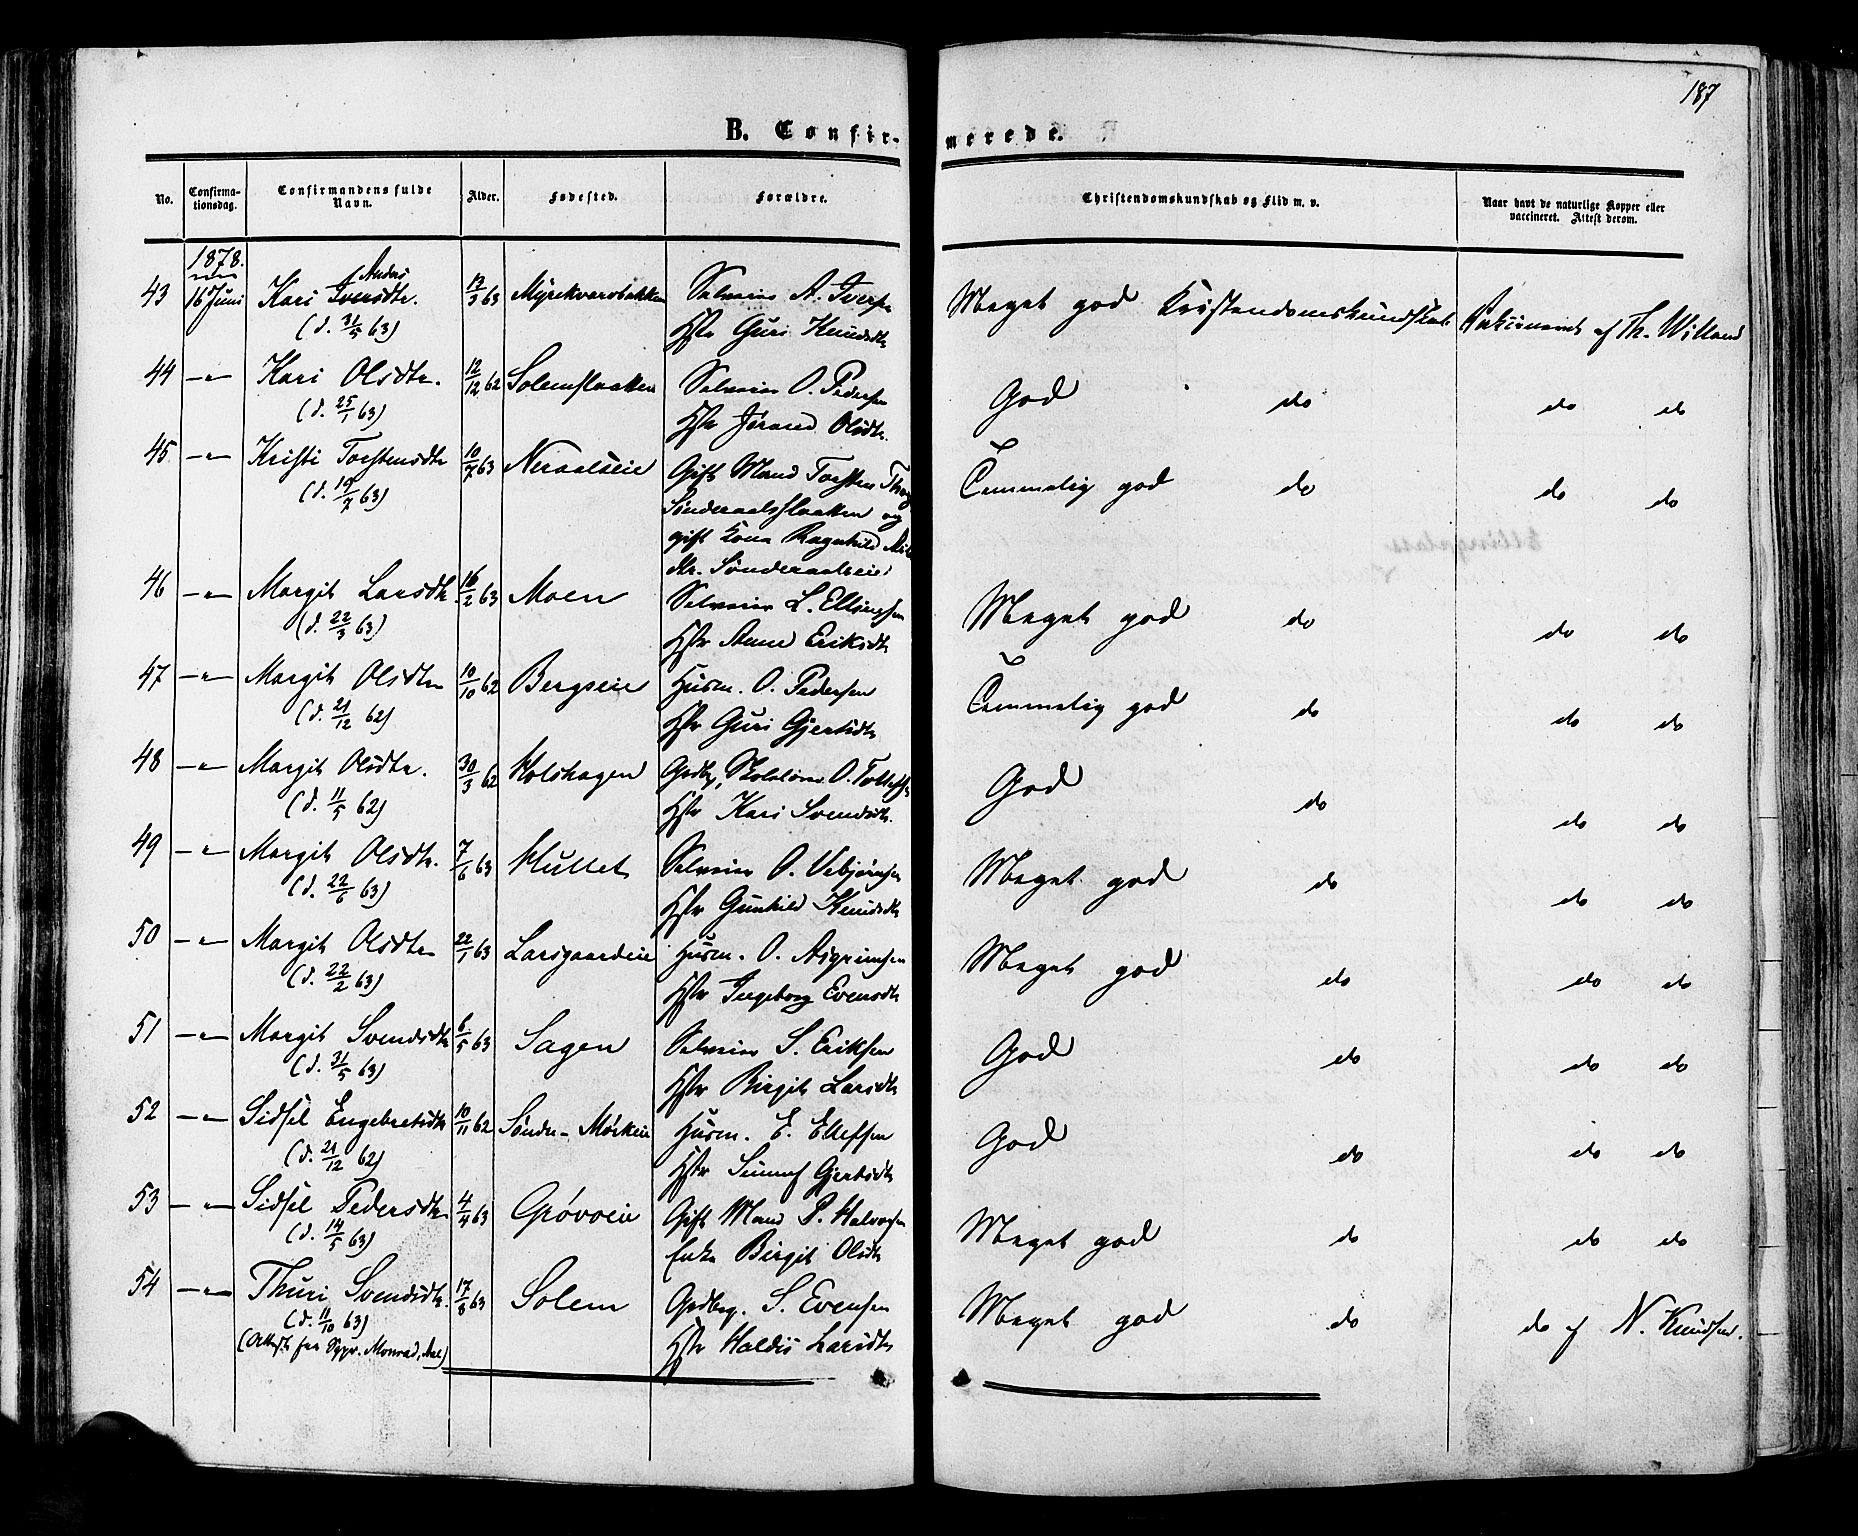 187
B. Confir-merede.
No. Confirma-tionsdag. Confirmandens fulde Navn. Alder. Fødested. Forældre. Christendomskundskab og Flid m. v. Naar havt de naturlige Kopper eller vaccineret. Attest derom.
1878.
43 16 Juni Kari Iversdtr. 13/3 63 Selveier A. Iversen Meget god Kristendomskundskab af Th. Willand
(d. 31/5 63) Hstr Guri Knudsdtr
44 —"— Kari Olsdtr. 12/12 62 Solemslaaken Selveier O. Pedersen God do do do
(d. 25/1 63) Hstr Jørand Olsdtr.
45 —"— Kristi Torstensdtr 10/7 63 Neraalseie Gift Mand Torsten Temmelig god do do do
(d. 19/7 63) Sønderaalsslaaken og
gift Kone Ragnhild
Sønderaalseie
46 —"— Margit Larsdtr. 16/2 63 Moen Selveier L. Ellingsen Meget god do do do
(d. 22/3 63) Hstr Anne Eriksdtr
47 —"— Margit Olsdtr 10/10 62 Bergseie Husm. O. Pedersen Temmelig god do do do
(d. 21/12 62) Hstr Guri Gjertsdtr
48 —"— Margit Olsdtr. 30/3 62 Holshagen Gdbr, Skolelærer O. Tollefsen God do do do
(d. 11/5 62) Hstr Kari Svendsdtr.
49 —"— Margit Olsdtr. 7/6 63 Hullet Selveier O. Vebjørnsen Meget god do do do
(d. 22/6 63) Hstr Gunhild Knudsdtr
50 —"— Margit Olsdtr 22/1 63 Larsgaardeie Husm. O. Asgrimsen Meget god do do do
(d. 22/2 63) Hstr Ingeborg Evensdtr
51 —"— Margit Svendsdtr 6/5 63 Sagen Selveier S. Eriksen God do do do
(d. 31/5 63) Hstr Birgit Larsdtr
52 —"— Sidsel Engebretsdtr 10/11 62 Søndre-Mørkeie Husm. E. Ellefsen God do do do
(d. 21/12 62) Hstr Gjertsdtr
53 —"— Sidsel Pedersdtr 4/4 63 Grøvoeie Gift Mand P. Halvorsen Meget god do do do
(d. 14/5 63) Enke Birgit Olsdtr
54 —"— Thuri Svendsdtr. 17/8 63 Solem Gdbrg. S. Evensen Meget god do do af N. Knudsen.
(d. 11/10 63) Hstr Haldis Larsdtr
(Attest fra Sgpr. Monrad, Aal)